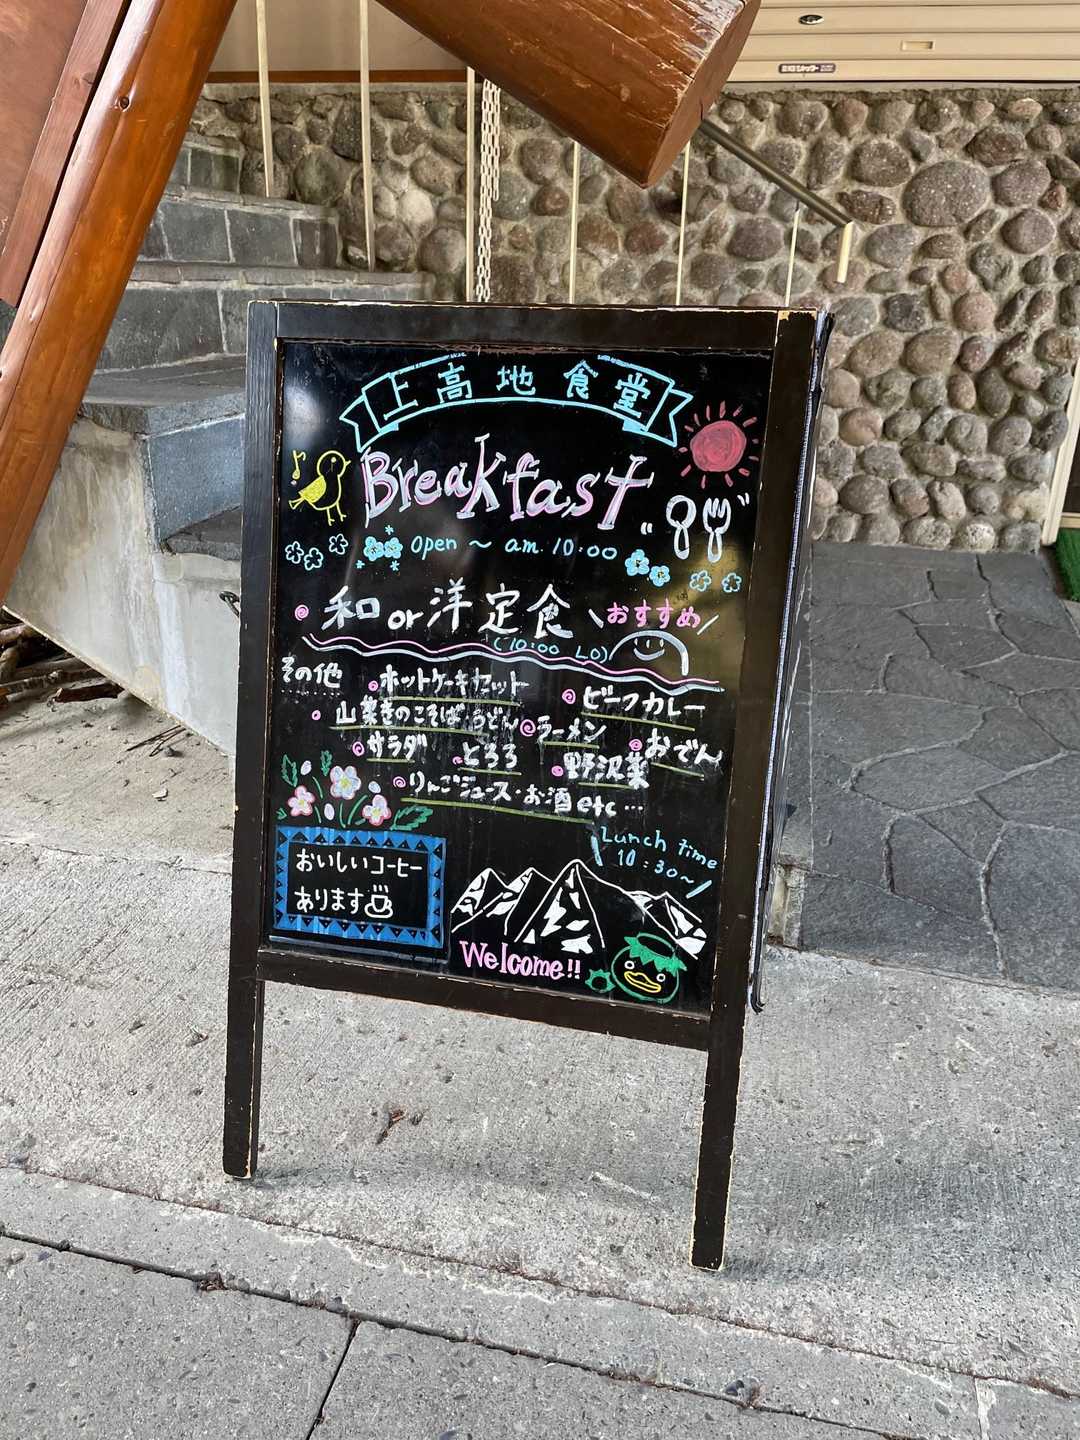 上高地食堂
Breakfast
open ～ am 10:00
和 or 洋 定食 \おすすめ/
(10:00 LO)
その他 ホットケーキセット ビーフカレー
山菜きのこそば・うどん ラーメン おでん
サラダ とろろ 野沢菜
りんごジュース・お酒 etc …
Lunch time
10:30～
おいしいコーヒー
あります
Welcome!!